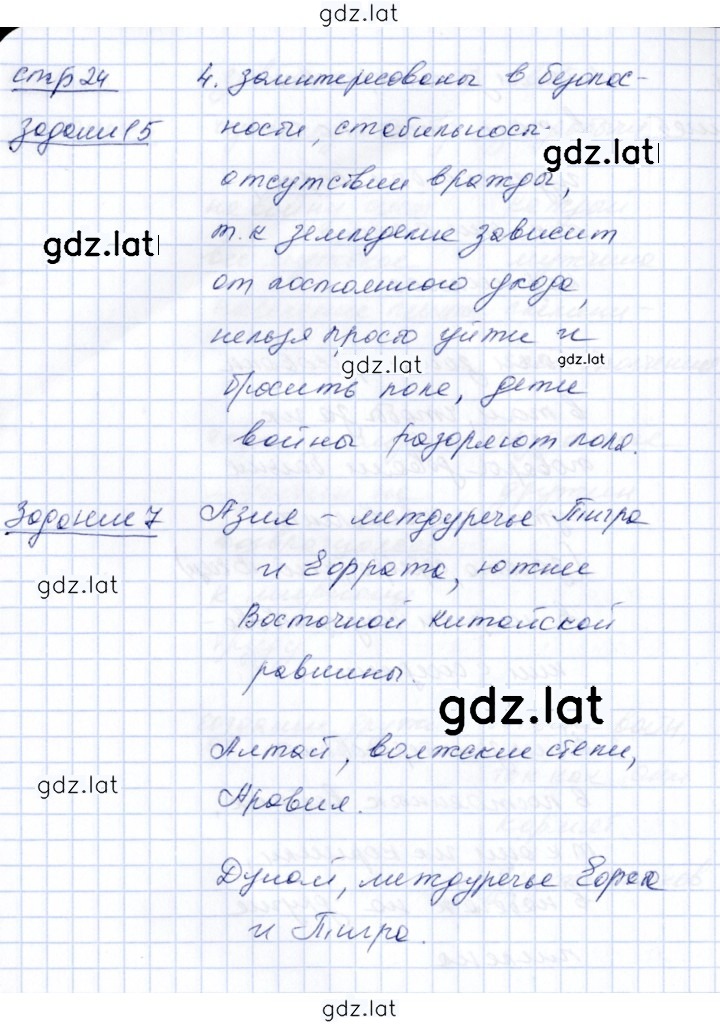 gdz.lat
стр 24
4. заинтересованы в безопас-
Задание 5
ности, стабильност-
gdz.lat
отсутствии вражды,
gdz.lat
т.к земледелие зависит
от постоянного ухода,
нельзя просто уйти и
gdz.lat
gdz.lat
бросить поле, дети
войны разоряют поля.
Задание 7
Азия - междуречье Тигра
и Евфрата, южнее
gdz.lat
Восточной китайской
равнины.
gdz.lat
Алтай, волжские степи,
gdz.lat
Аравия.
Дунай, междуречье
и Тигра.
gdz.lat